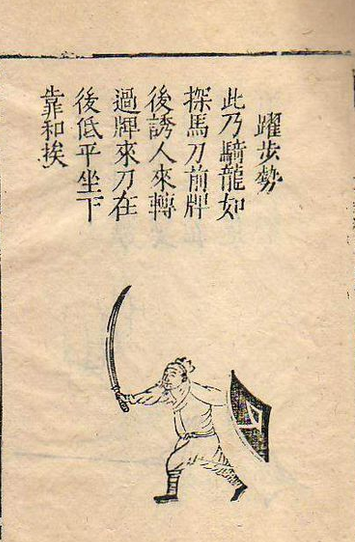 躍步勢
此乃騎龍如
探馬刀前牌
後誘人來轉
過牌來刀在
後低平坐下
靠和挨